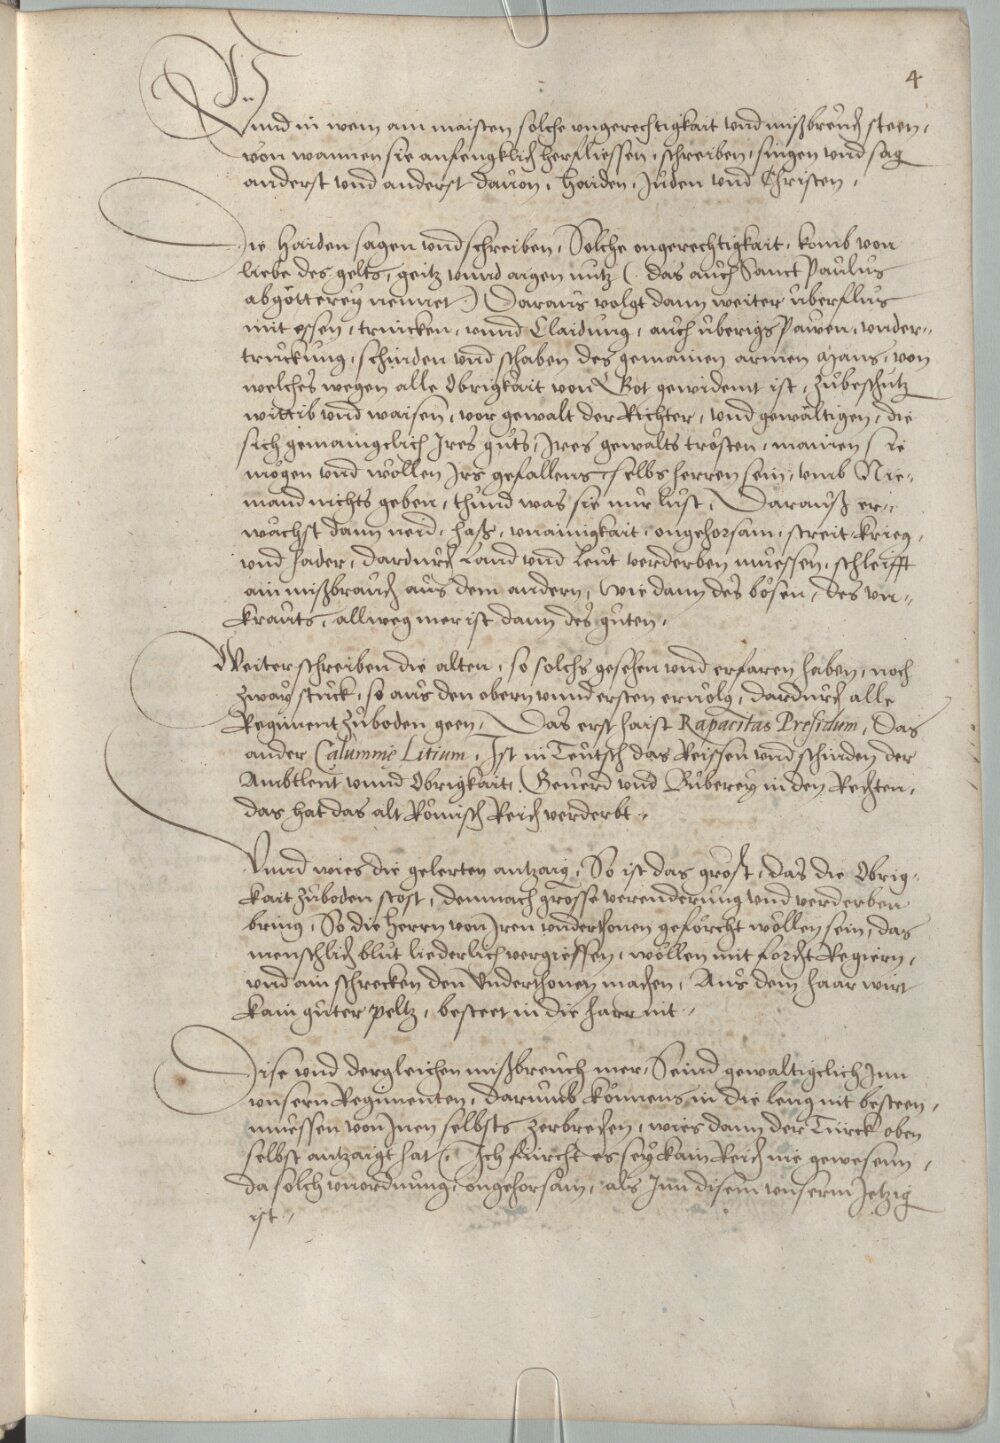 4
Vnnd in wem am maisten solche vngerechtigkait vnd mißbreuch steen,
von wannen sie anfengklich herfliessen, schreiben, singen vnd sag
anderst vnd anderst dauon, Haiden, Juden vnd Christen.
Die Haiden sagen vnd schreiben, Solche vngerechtigkait, komb von
liebe des gelts, geitz vnnd aigen nutz (das auch Sanct Paulus
abgötterey nennet) Daraus volgt dann weiter überflus
mit essen, trincken, vnnd Claidung, auch überigs Pawen, vnder-
truckung, schinden vnd schaben des gemainen armen Mans, von
welches wegen alle Obrigkait von Got gewidemt ist, zubeschutz
wittib vnd waisen, vor gewalt der Richter, vnd gewaltigen, die
sich gemaingclich Ires guts, Ires gewalts trösten, mainen sie
mögen vnd wöllen Irs gefallens selbs herren sein, vmb Nie-
mand nichts geben, thund was sie nur lust, Darauß er-
wachst dann neid, haß, vnainigkait, vngehorsam, streit, krieg,
vnd hader, dardurch Land vnd Leut verderben muessen, schleifft
ain mißbrauch aus dem andern, wie dann des bösen, des vn-
krauts, allweg mer ist dann des guten.
Weiter schreiben die alten, so solchs gesehen vnd erfaren haben, noch
zway stuck, so aus den obern vnnd ersten ervolg, dardurch alle
Regiment zuboden geen, Das erst haist Rapacitas Presidum, Das
ander Calumnie Litium, Ist in Teutsch das Reissen vnd schinden der
Ambtleut vnnd Obrigkait, Geuerd vnd Buberey in den Rechten,
das hat das alt Römisch Reich verderbt.
Vnnd wies die gelerten antzaig, So ist das gröst, das die Obrig-
kait zuboden stost, demnach grosse verenderung vnd verderben
bring, So die Herrn von Iren vnderthonen geförcht wöllen sein, das
menschlich blut liederlich vergiessen, wöllen mit forcht Regiern,
vnd ain schrecken den Vnderthonen machen, Aus dem haar wirt
kain guter peltz, besteet in die harr nit.
Dise vnd dergleichen mißbreuch mer, Seind gewaltigclich Inn
vnsern Regimenten, darumb könnens in die leng nit besteen,
muessen von Inen selbsts zerbrechen, wies dann der Türck oben
selbst antzaigt hat, Ich fürcht es sey kain Reich nie gewesenn,
da solch vnordnung, vngehorsam, als Inn disem vnserm Jetzig
ist.